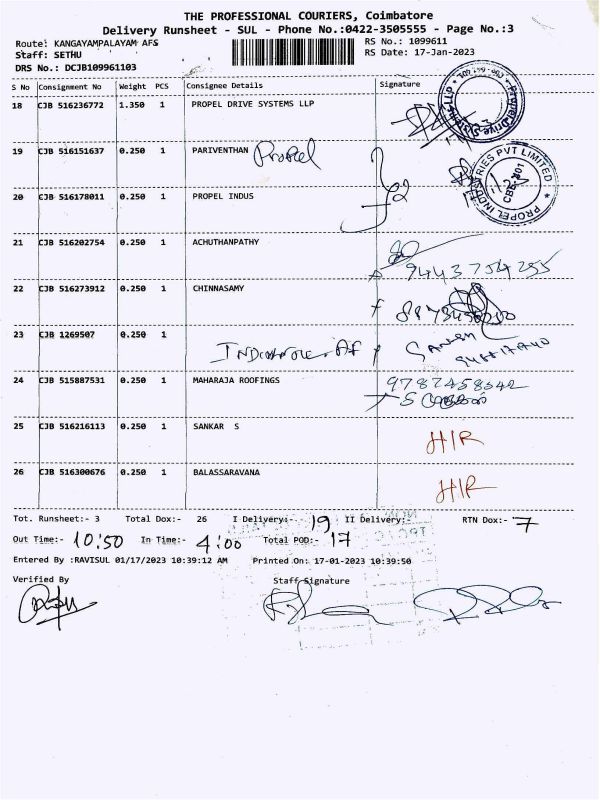 THE PROFESSIONAL COURIERS, Coimbatore
Delivery Runsheet - SUL - Phone No.:0422-3505555 - Page No.:3
Route: KANGAYAMPALAYAM AFS
RS No.: 1099611
Staff: SETHU
RS Date: 17-Jan-2023
DRS No.: DCJB109961103
S No Consignment No Weight PCS Consignee Details Signature
18 CJB 516236772 1.350 1 PROPEL DRIVE SYSTEMS LLP
19 CJB 516151637 0.250 1 PARIVENTHAN Propel
PROPEL INDUSTRIES PVT LIMITED
20 CJB 516178011 0.250 1 PROPEL INDUS
21 CJB 516202754 0.250 1 ACHUTHANPATHY
9443754255
22 CJB 516273912 0.250 1 CHINNASAMY
23 CJB 1269507 0.250 1
24 CJB 515887531 0.250 1 MAHARAJA ROOFINGS
25 CJB 516216113 0.250 1 SANKAR S
HIR
26 CJB 516300676 0.250 1 BALASSARAVANA
HIR
Tot. Runsheet:- 3 Total Dox:- 26 I Delivery:- 19 II Delivery:- RTN Dox:- 7
Out Time:- 10:50 In Time:- 4:00 Total POD:- 17
Entered By :RAVISUL 01/17/2023 10:39:12 AM Printed On: 17-01-2023 10:39:50
Verified By Staff Signature